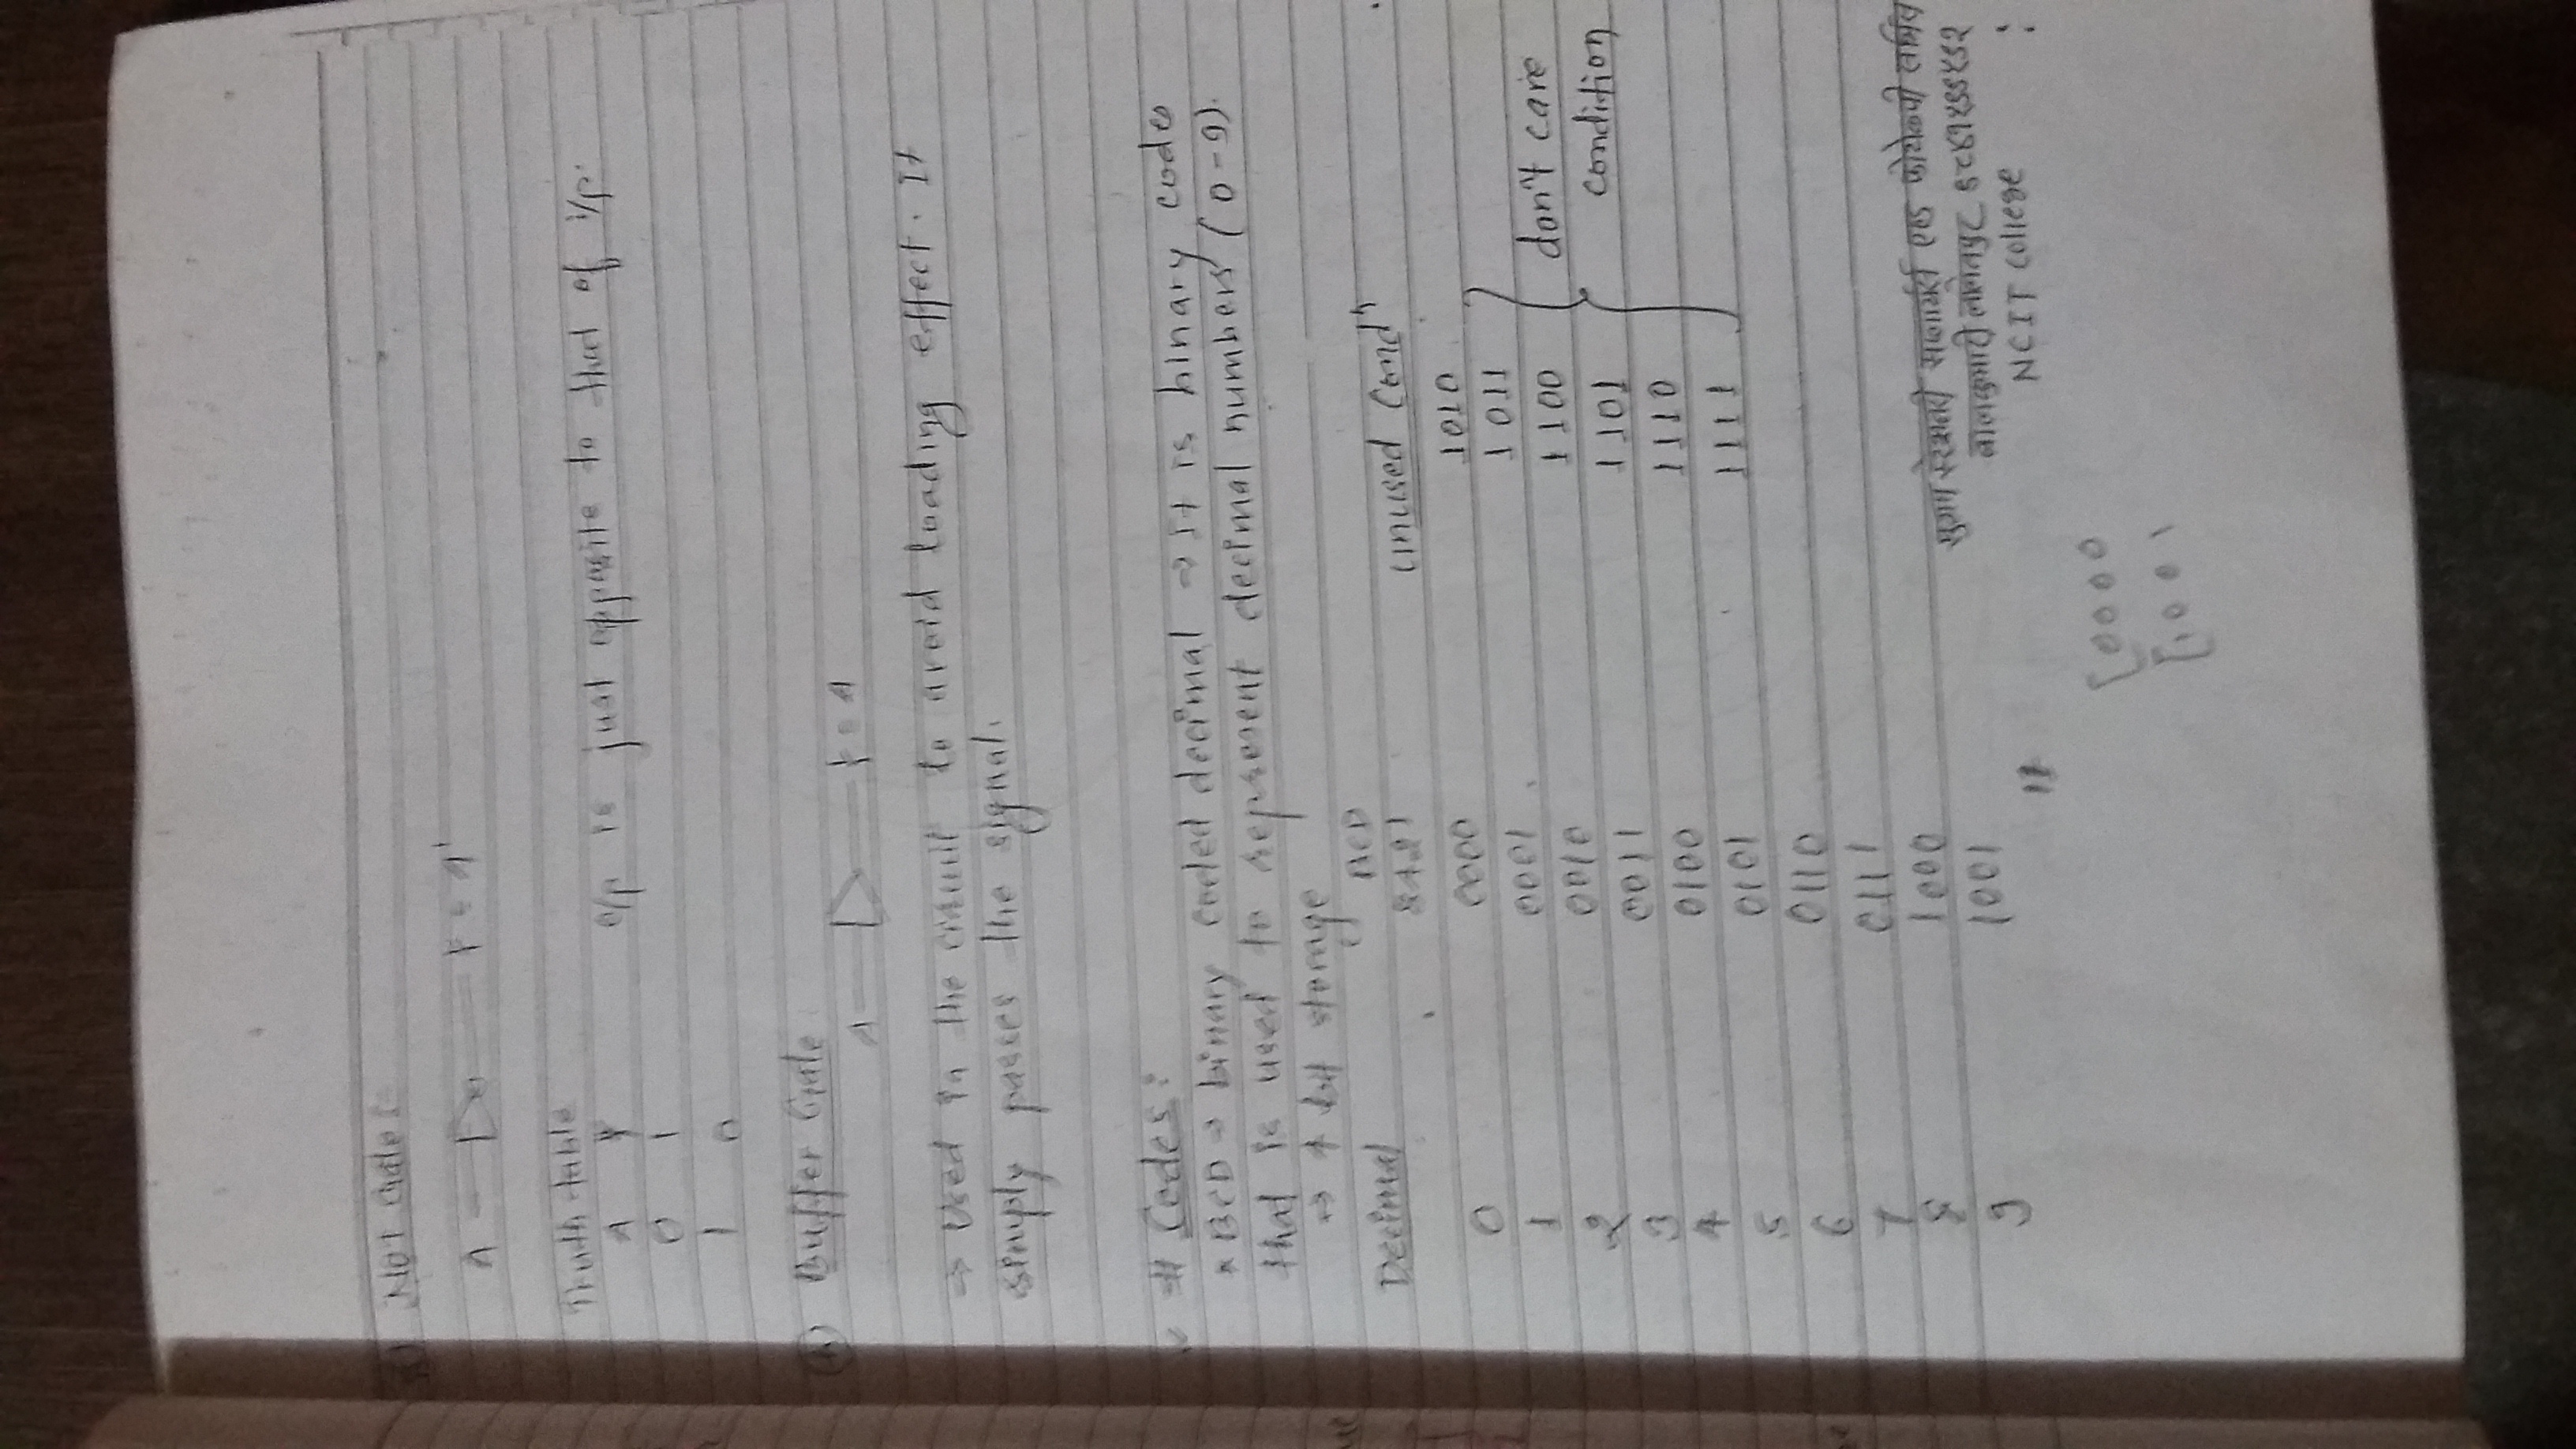 NOT Gate:
A Y = A'
Truth table
A Y o/p is just opposite to that of i/p.
0 1
1 0
Buffer Gate
A Y = A
→ Used in the circuit to avoid loading effect. It
simply passes the signal.
# Codes:
* BCD → binary coded decimal → It is binary codes
that is used to represent decimal numbers (0-9).
→ 4 bit storage
Decimal BCD
8421 unused Condⁿ
0 0000 1010
1 0001 1011
2 0010 1100 don't care
3 0011 1101 condition
4 0100 1110
5 0101 1111
6 0110
7 0111
8 1000
9 1001
सप्लायर्स एण्ड फोटोकपी सर्भिस
बालकुमारी ललितपुर
NCIT College
11
[0000
[1001